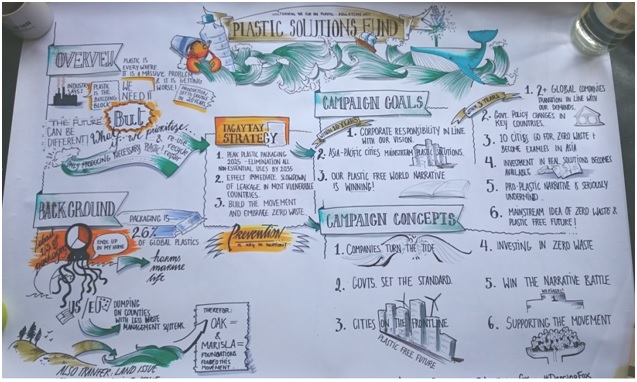 PLASTIC SOLUTIONS FUND
OVERVIEW
PLASTIC IS
EVERYWHERE
IT IS A MASSIVE PROBLEM
& IT IS GETTING
WORSE!
INDUSTRY
SAYS:
PLASTIC IS
THE BUILDING
BLOCK!
WE
NEED IT
But
THE FUTURE
CAN BE
DIFFERENT!
BACKGROUND
PACKAGING IS
26%
OF GLOBAL PLASTICS
ENDS UP
IN MY HOME
harms
marine
life
US/EU
DUMPING
ON COUNTIES
WITH LESS WASTE
MANAGEMENT SYSTEMS
ALSO TRANFER: LAND ISSUE
THEREFOR:
OAK
&
MARISLA
FOUNDATIONS
FUNDED THIS
MOVEMENT
TAGAYTAY
STRATEGY
1. PEAK PLASTIC PACKAGING
2025 - ELIMINATION ALL
NON-ESSENTIAL USES BY 2035
2. EFFECT IMMEDIATE SLOWDOWN
OF LEACAGE IN MOST VULNERABLE
COUNTRIES.
3. BUILD THE MOVEMENT
AND EMBRACE ZERO WASTE.
Prevention
CAMPAIGN GOALS
1. CORPORATE RESPONSIBILITY IN LINE
WITH OUR VISION.
2. ASIA-PACIFIC CITIES MAINSTREAM PLASTIC SOLUTIONS
3. OUR PLASTIC FREE WORLD NARRATIVE
IS WINNING!
1. 2+ GLOBAL COMPANIES
TRANSITION IN LINE WITH
OUR DEMANDS.
2. GOVT. POLICY CHANGES IN
KEY COUNTRIES.
3. 10 CITIES GO FOR ZERO WASTE +
BECOME EXAMPLES IN ASIA
4. INVESTMENT IN REAL SOLUTIONS BECOMES
AVAILABLE
5. PRO-PLASTIC NARRATIVE IS SERIOUSLY
UNDERMIND
6. MAINSTREAM IDEA OF ZERO WASTE &
PLASTIC FREE FUTURE!
CAMPAIGN CONCEPTS
1. COMPANIES TURN THE TIDE
2. GOVTS. SET THE STANDARD.
3. CITIES ON THE FRONTLINE
PLASTIC FREE FUTURE
4. INVESTING IN ZERO WASTE
5. WIN THE NARRATIVE BATTLE
6. SUPPORTING THE MOVEMENT